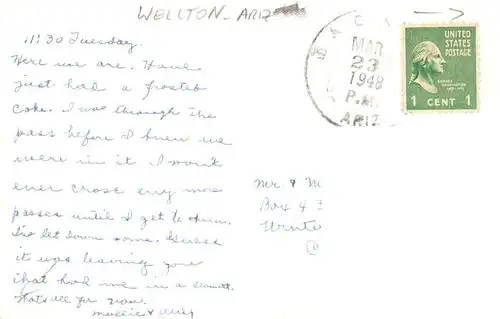 WELLTON - ARIZ
11:30 Tuesday.
Here we are. Have
just had a frosted
coke. I was through the
pass before I knew we
were in it I won't
ever cross any more
passes until I get to
let down some. Guess
it was leaving you
that had me in a sweat.
That's all for now.
Mollie &
MAR
23
1948
P.M.
ARIZ
UNITED
STATES
POSTAGE
1 CENT 1
Mr. & M
Box 43
Winte